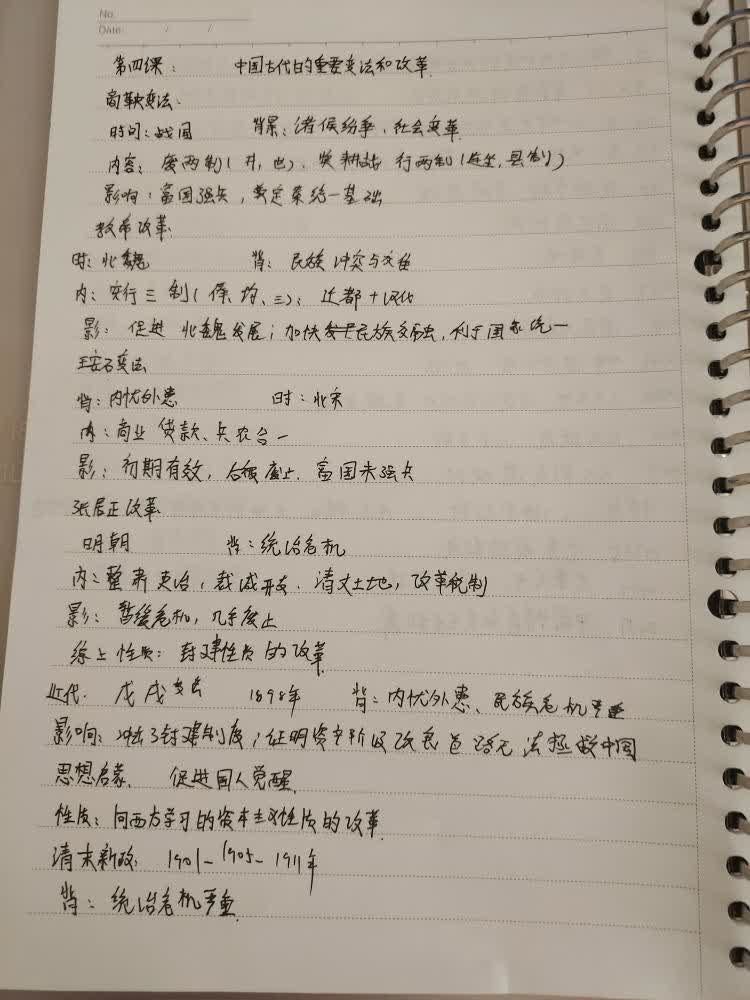 No.
Date / /
第四课： 中国古代的重要变法和改革
商鞅变法：
时间：战国 背景：诸侯纷争、社会变革
内容：废两制(井，世)、奖耕战 行两制(连坐，县制)
影响：富国强兵，奠定秦统一基础
孝帝改革
时：北魏 背：民族冲突与交往
内：实行三制(俸、均、三)；迁都+汉化
影：促进北魏发展；加快民族交融，利于国家统一
王安石变法
背：内忧外患 时：北宋
内：商业贷款、兵农合一
影：初期有效，后被废止．富国未强兵
张居正改革
明朝 背：统治危机
内：整肃吏治，裁减开支．清丈土地，改革税制
影：暂缓危机，几乎废止
综上性质：封建性质的改革
近代．戊戌变法 1898年 背：内忧外患、民族危机严重
影响：冲击了封建制度；证明资产阶级改良道路无法拯救中国
思想启蒙． 促进国人觉醒
性质：向西方学习的资本主义性质的改革
清末新政：1901-1905-1911年
背：统治危机严重